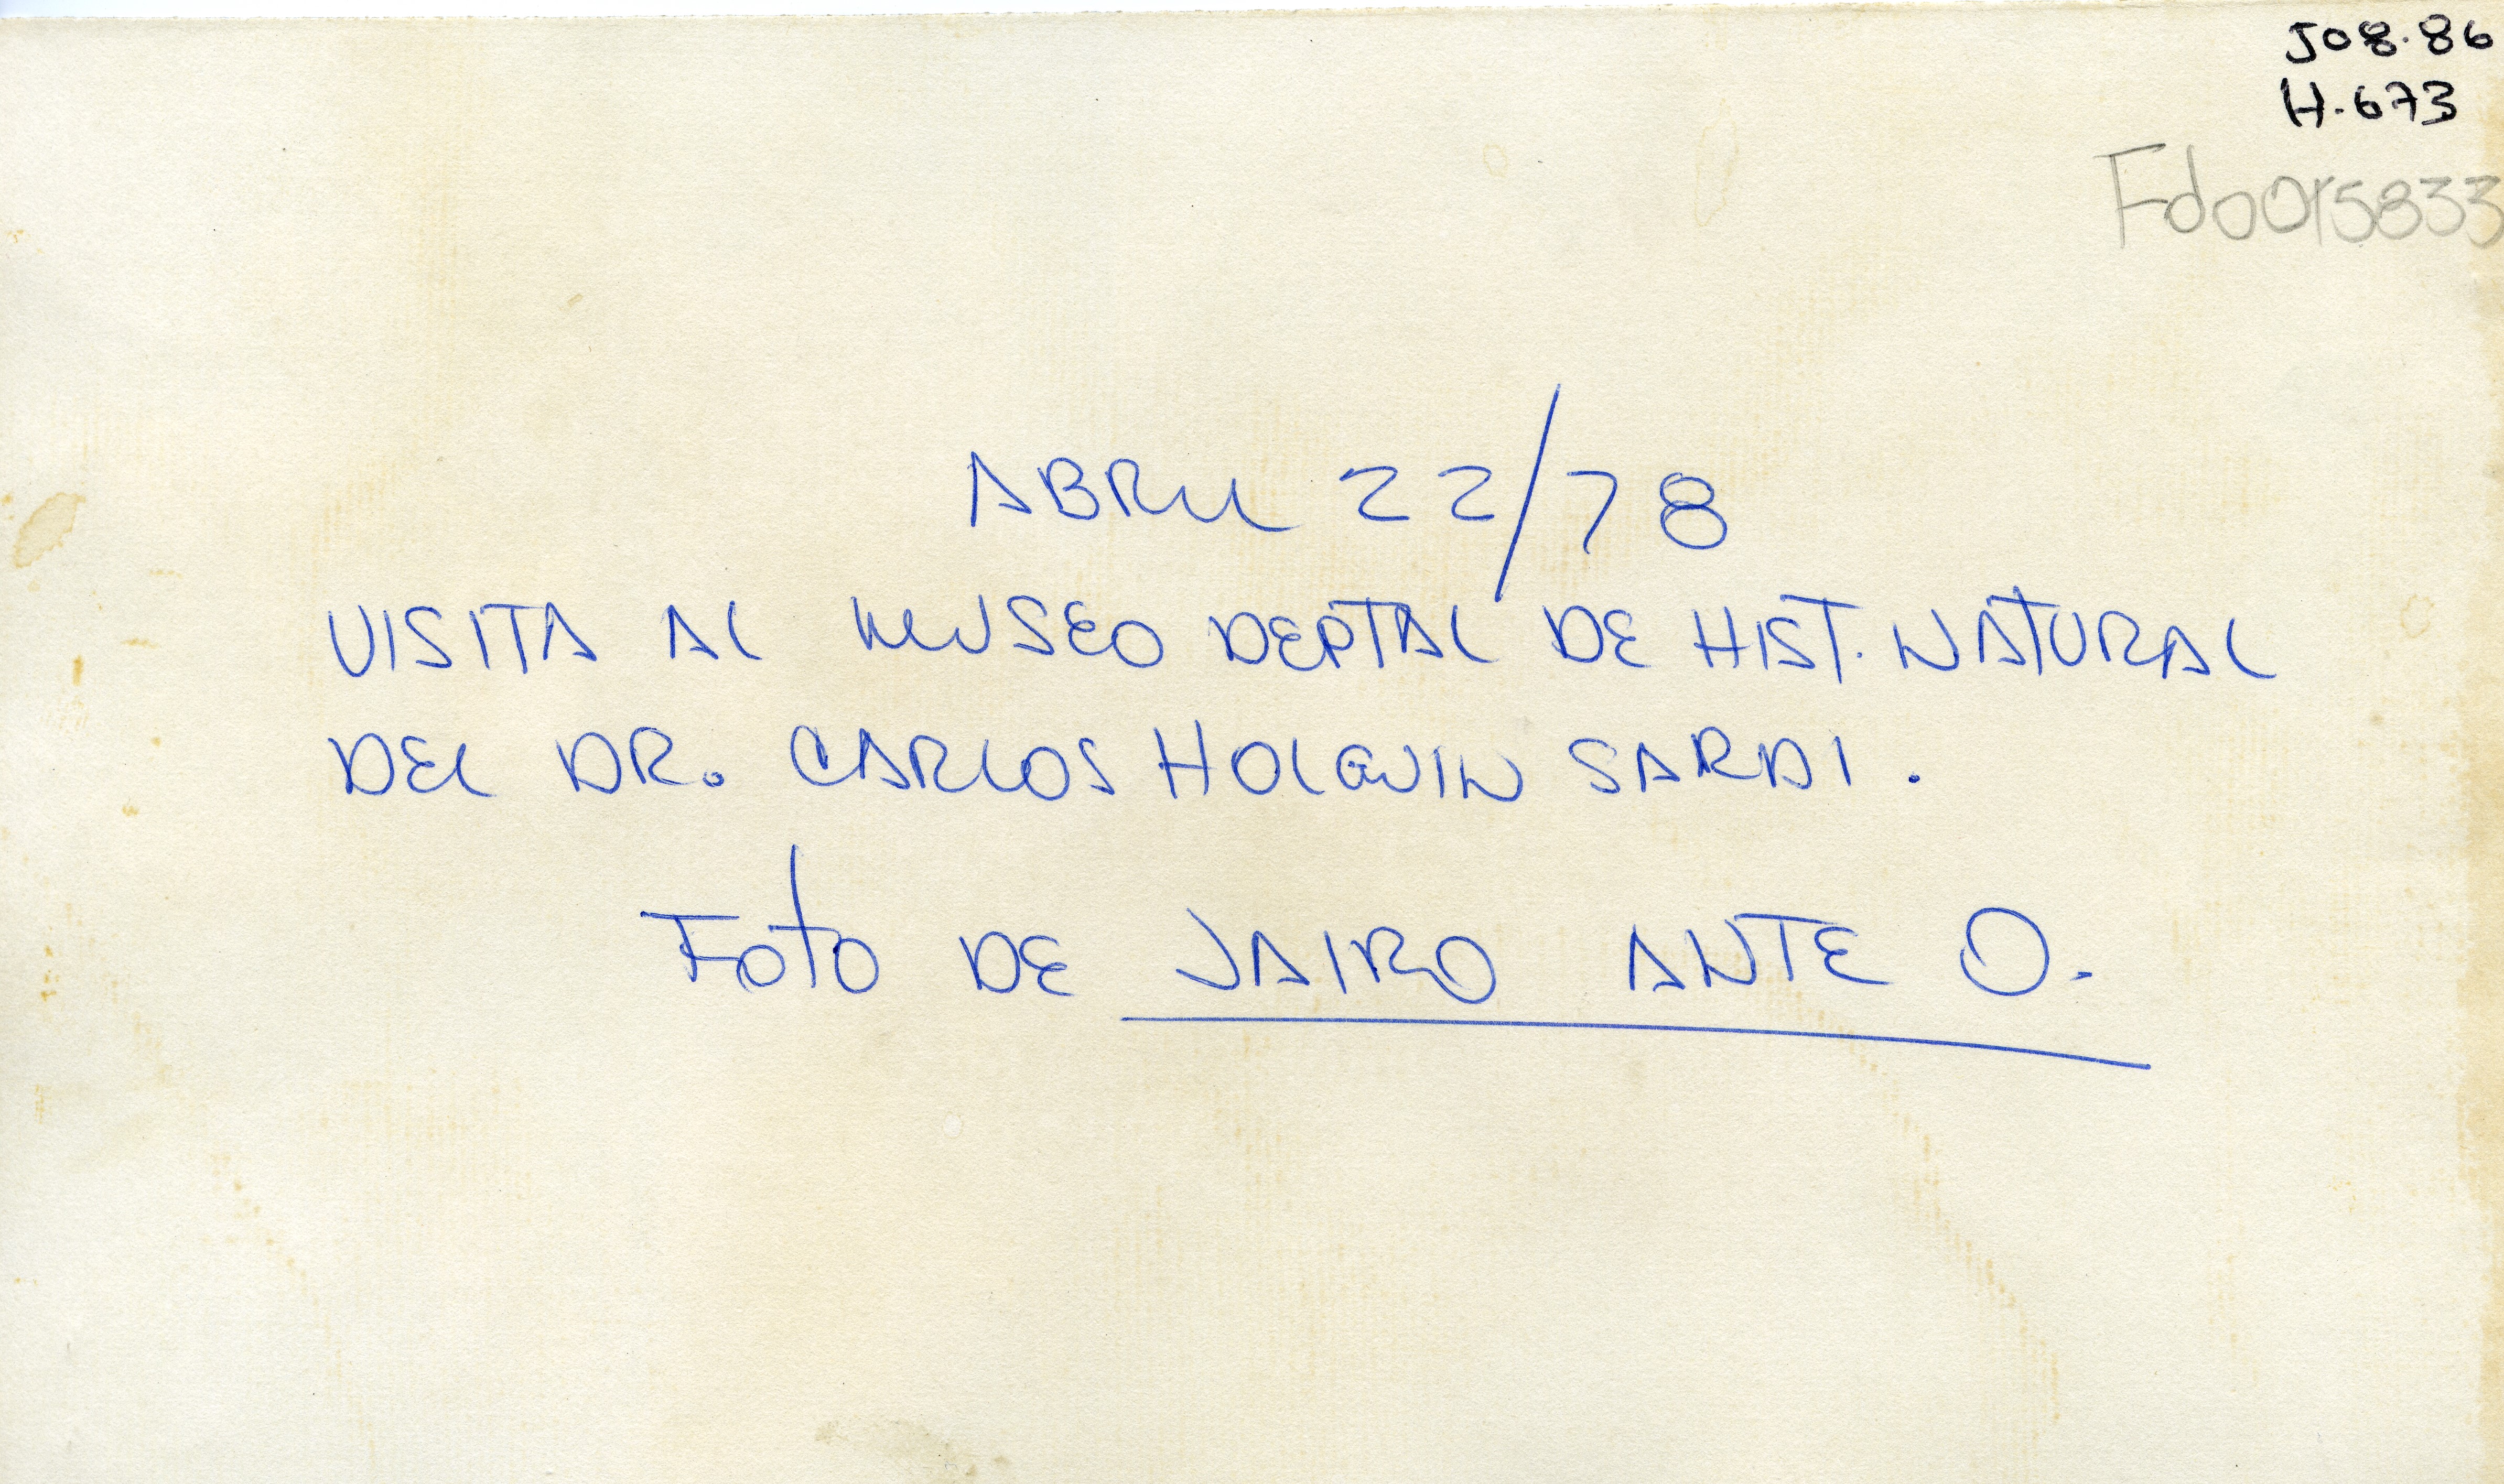 508.86
H.673
Fdo015833
ABRIL 22/78
VISITA AL MUSEO DEPTAL DE HIST. NATURAL
DEL DR. CARLOS HOLGUIN SARDI.
FOTO DE JAIRO ANTE O.